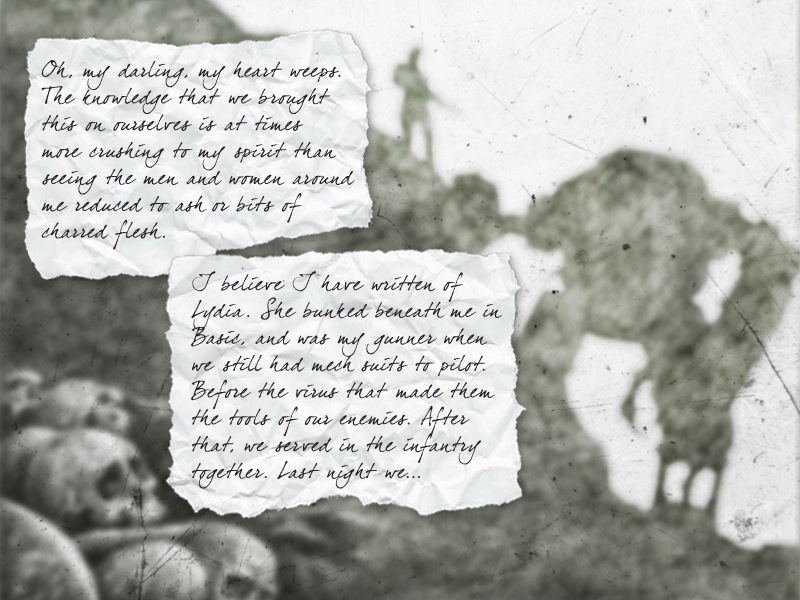 Oh, my darling, my heart weeps.
The knowledge that we brought
this on ourselves is at times
more crushing to my spirit than
seeing the men and women around
me reduced to ash or bits of
charred flesh.
I believe I have written of
Lydia. She bunked beneath me in
Basic, and was my gunner when
we still had mech suits to pilot.
Before the virus that made them
the tools of our enemies. After
that, we served in the infantry
together. Last night we...